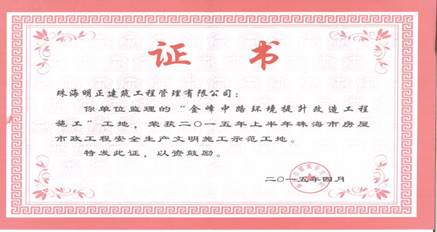 证书
珠海明正建筑工程管理有限公司：
你单位监理的“金峰中路环境提升改造工程
施工”工地，荣获二〇一五年上半年珠海市房屋
市政工程安全生产文明施工示范工地。
特发此证，以资鼓励。
二〇一五年四月